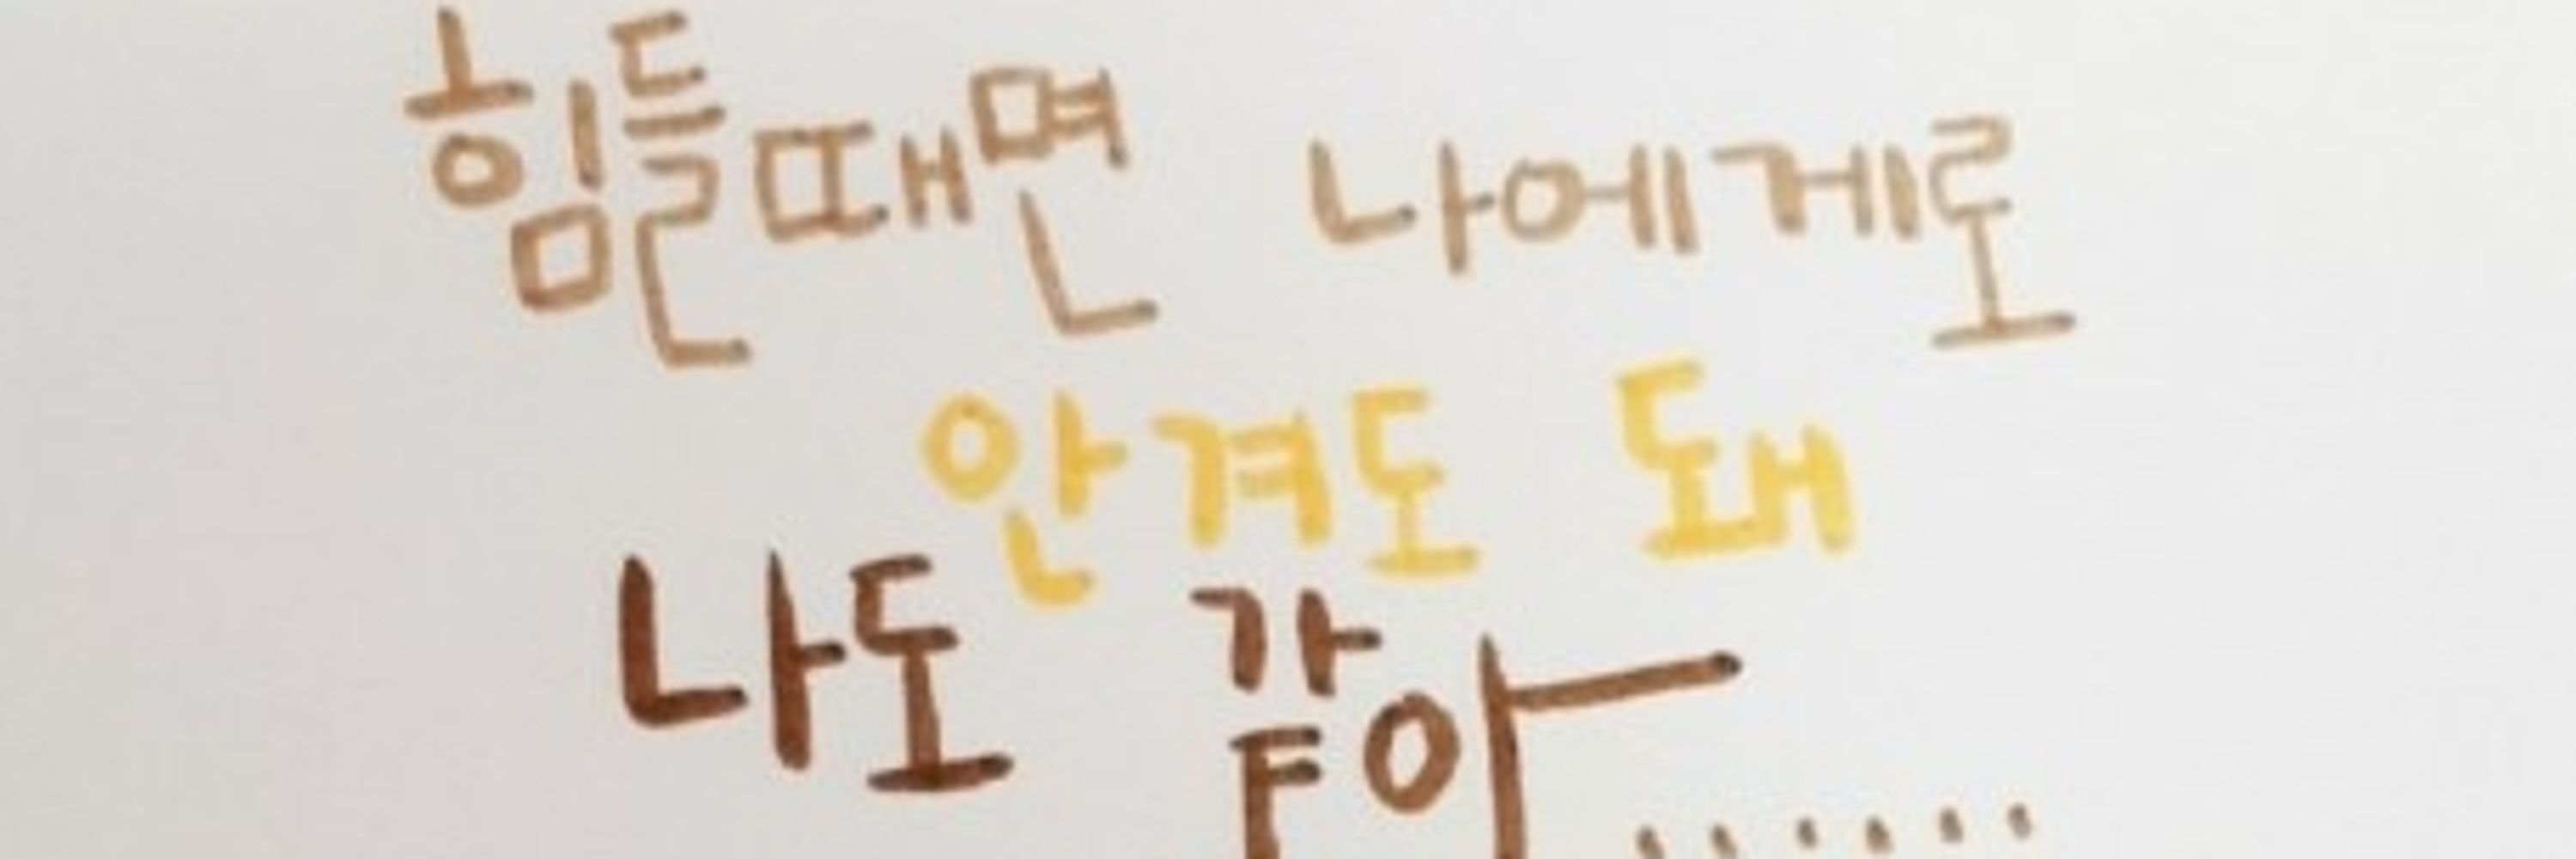 힘들때면 나에게로
안겨도 돼
나도 같아......